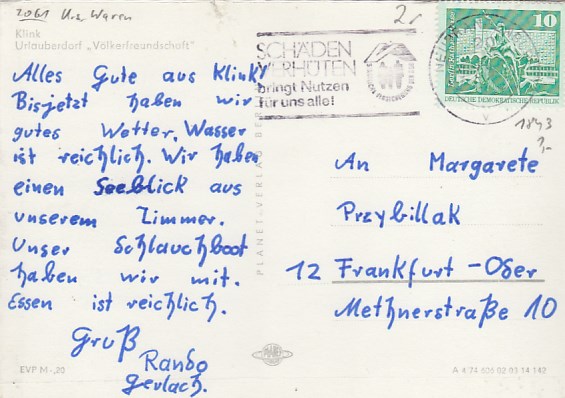 2061 Krs. Waren
Klink
Urlauberdorf „Völkerfreundschaft"
Alles Gute aus Klink!
Bisjetzt haben wir
gutes Wetter, Wasser
ist reichlich. Wir haben
einen Seeblick aus
unserem Zimmer.
Unser Schlauchboot
haben wir mit.
Essen ist reichlich.
Gruß
Rando
Gerlach.
EVP M -,20
PLANET-VERLAG BERLIN
SCHÄDEN
VERHÜTEN
bringt Nutzen
für uns alle!
10
DEUTSCHE DEMOKRATISCHE REPUBLIK
1843
An Margarete
Przybillak
12 Frankfurt-Oder
Methnerstraße 10
PLANET
A 4 74 606 02 03 14 142